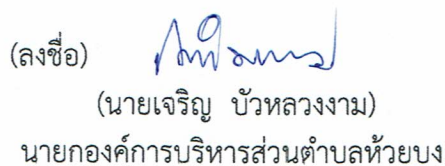 (ลงชื่อ)
(นายเจริญ บัวหลวงงาม)
นายกองค์การบริหารส่วนตำบลห้วยบง